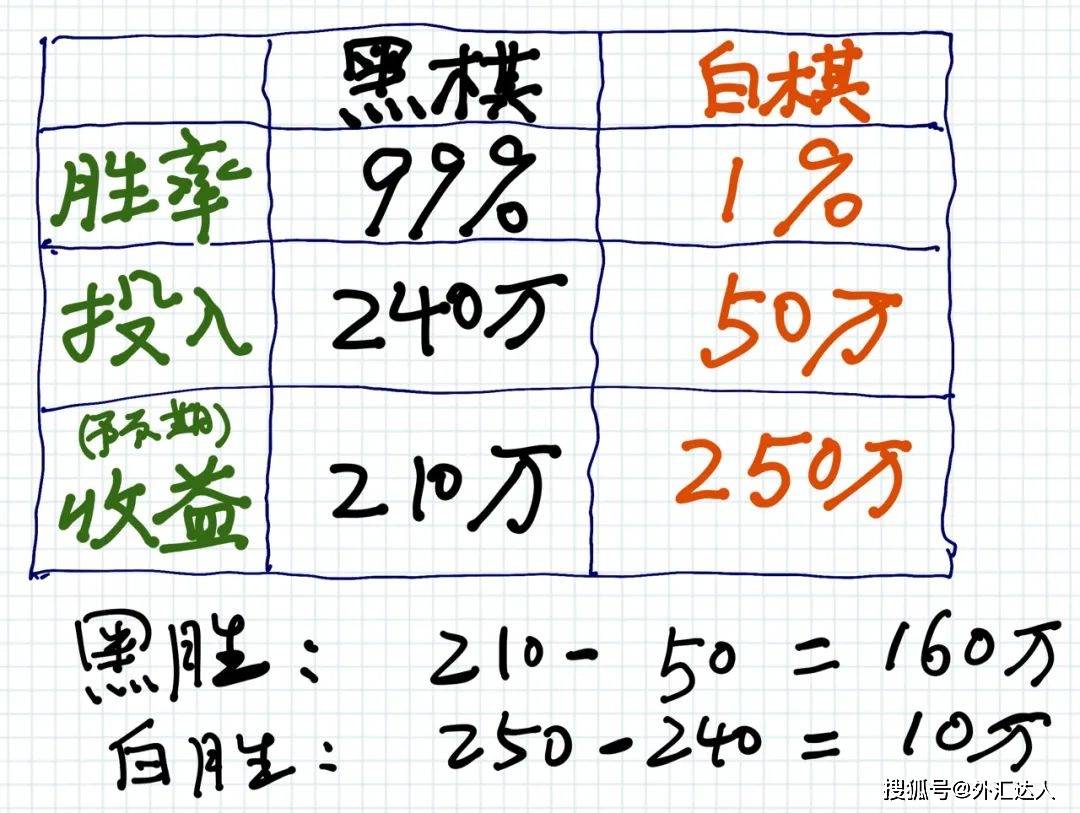 黑棋 白棋
胜率 99% 1%
投入 240万 50万
(预期)
收益 210万 250万
黑胜: 210-50=160万
白胜: 250-240=10万
搜狐号@外汇达人